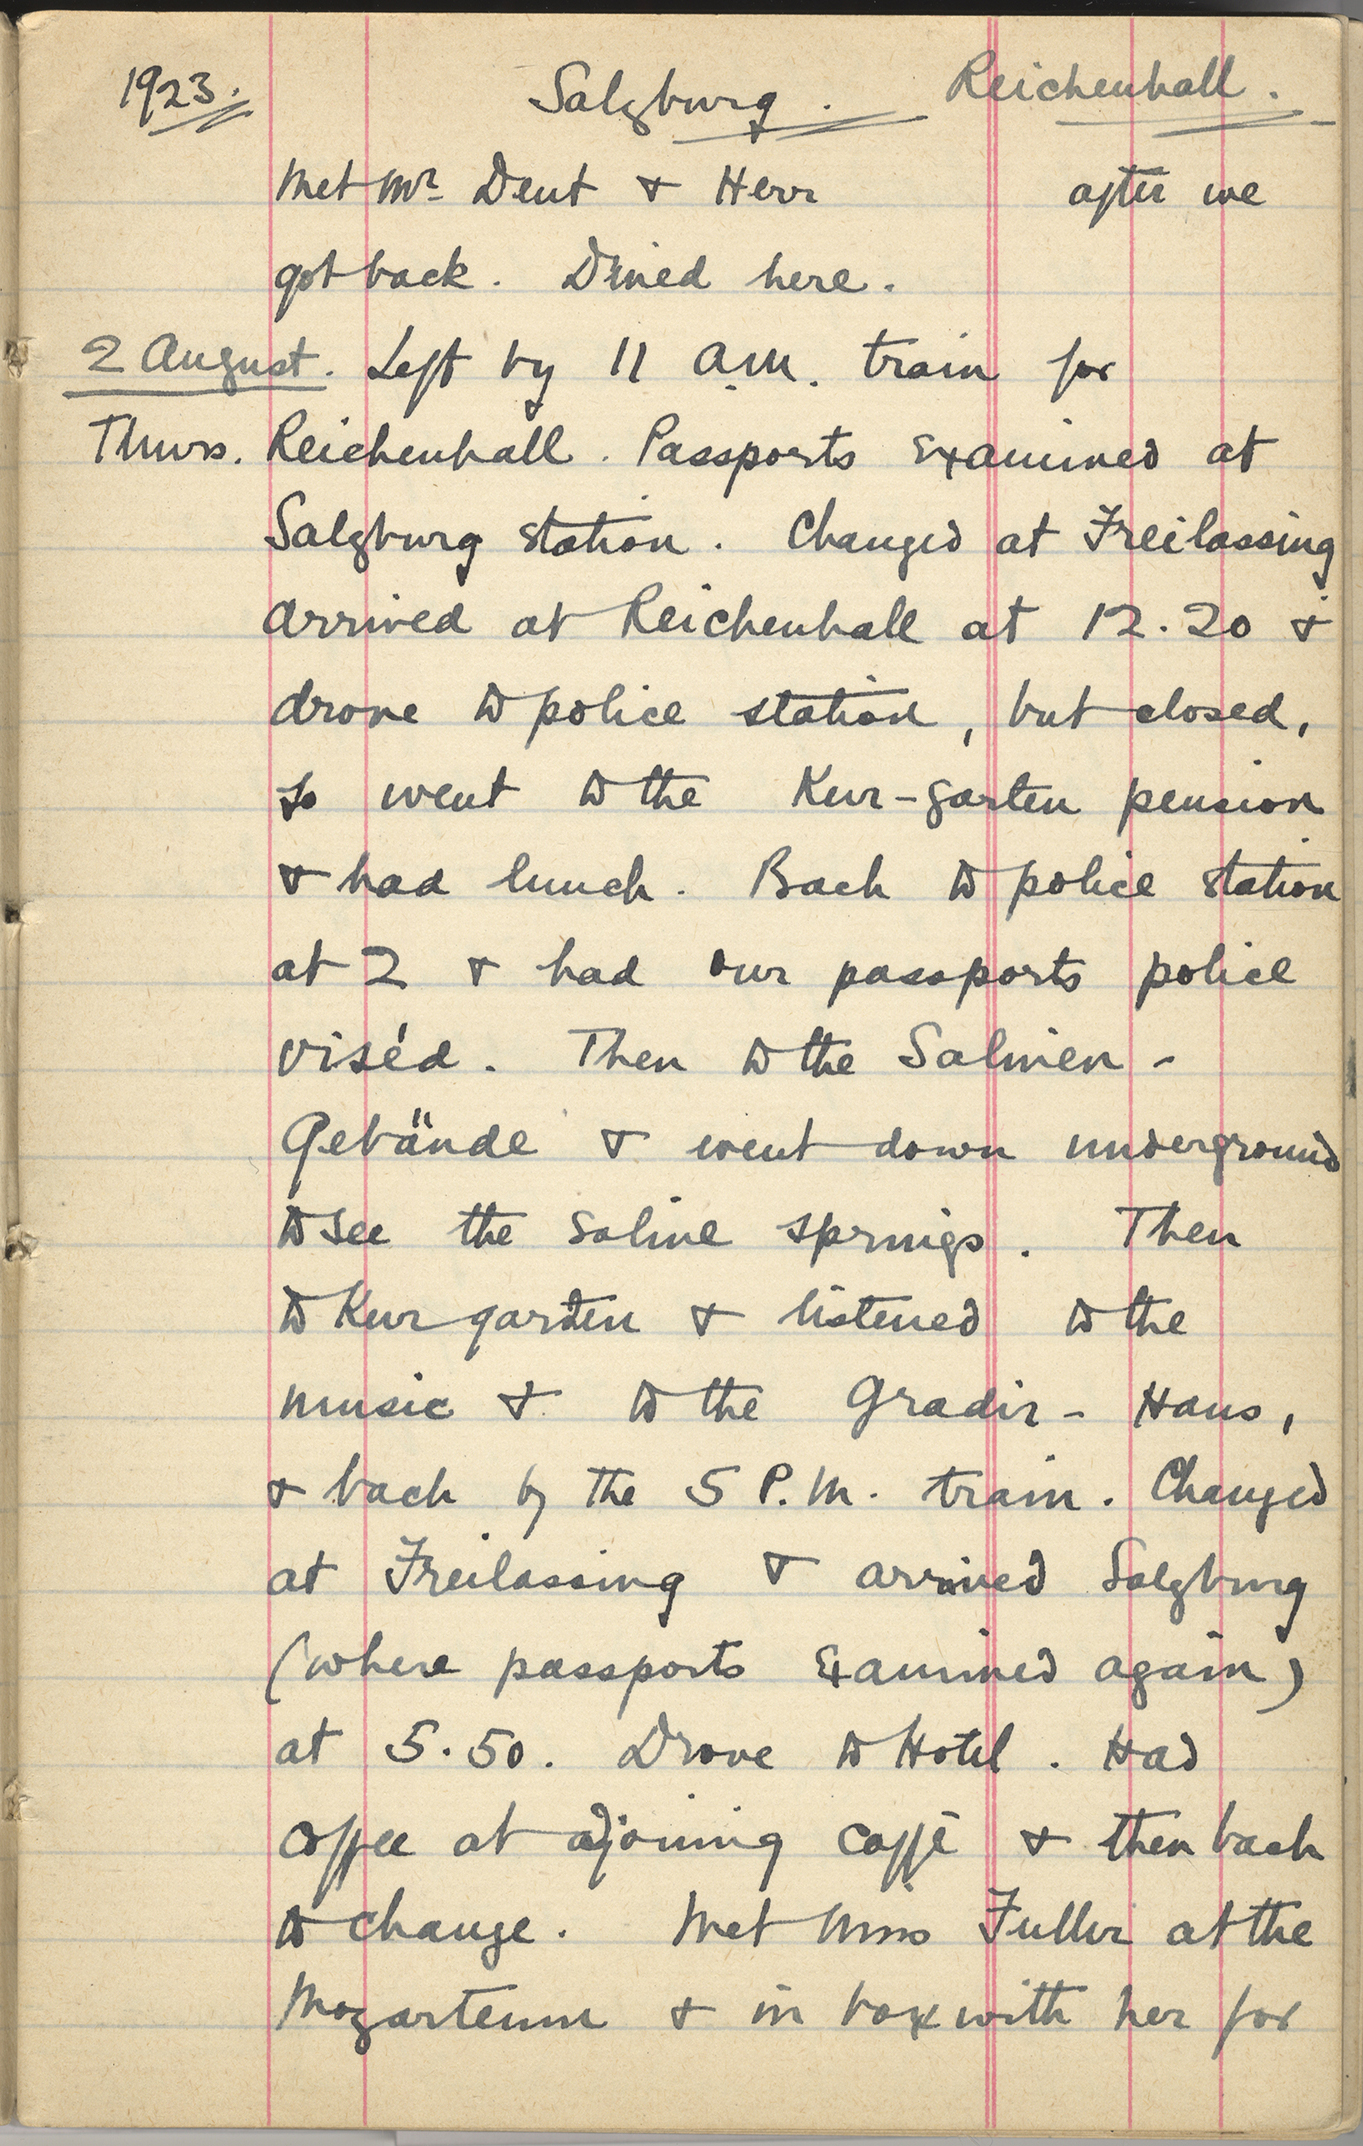 1923. Salzburg. Reichenhall.
Met Mr Dent & Herr after we
got back. Dined here.
2 August. Left by 11 a.m. train for
Thurs. Reichenhall. Passports examined at
Salzburg station. Changed at Freilassing
arrived at Reichenhall at 12.20 &
drove to police station, but closed,
so went to the Kur-garten pension
& had lunch. Back to police station
at 2 & had our passports police
viséd. Then to the Salinen-
Gebäude & went down underground
to see the saline springs. Then
to Kurgarten & listened to the
music & to the Gradir-Haus,
& back by the 5 P.M. train. Changed
at Freilassing & arrived Salzburg
(where passports examined again)
at 5.50. Drove to Hotel. Had
coffee at adjoining caffé & then back
to change. Met Miss Fuller at the
Mozarteum & in box with her for